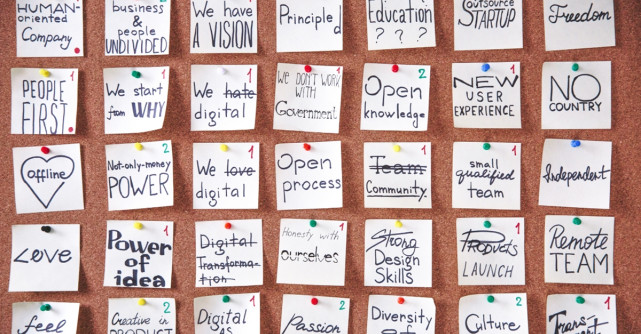 HUMAN-
oriented
Company
business
&
people
UNDIVIDED
We have
A VISION
Principled
Education
? ? ?
outsource
STARTUP
Freedom
1
PEOPLE
FIRST
We start
from WHY
1
We hate
digital
1
We DON'T WORK
WITH
Government
2
Open
knowledge
1
NEW
USER
EXPERIENCE
NO
COUNTRY
offline
2
Not-only-money
POWER
1
We love
digital
1
Open
process
1
Team
Community
1
small
qualified
team
Independent
Love
1
Power
of
idea
1
Digital
Transforma-
tion
2
Honesty with
ourselves
Strong
Design
Skills
1
Products
LAUNCH
2
Remote
TEAM
feel
2
Creative in
PRODUCT
1
Digital
AS
2
Passion
1
Diversity
of
2
Culture
1